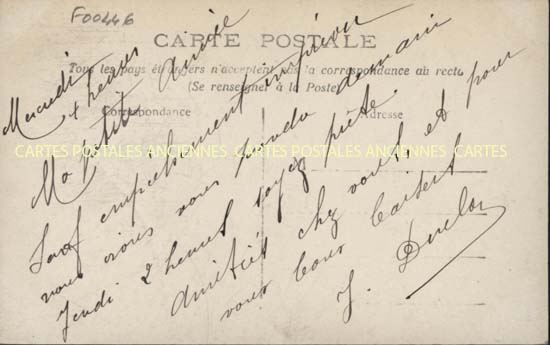 F00446
CARTE POSTALE
Tous les pays étrangers n'acceptent pas la correspondance au recto
(Se renseigner à la Poste)
Correspondance
Adresse
CARTES POSTALES ANCIENNES CARTES POSTALES ANCIENNES CARTES
Mercredi
4 heures
Ma petite Aimée
Sauf empêchement imprévu
nous irons vous rendre demain
Jeudi 2 heures soyez prête.
Amitiés chez vous et pour
vous bons baisers
J. Duclos